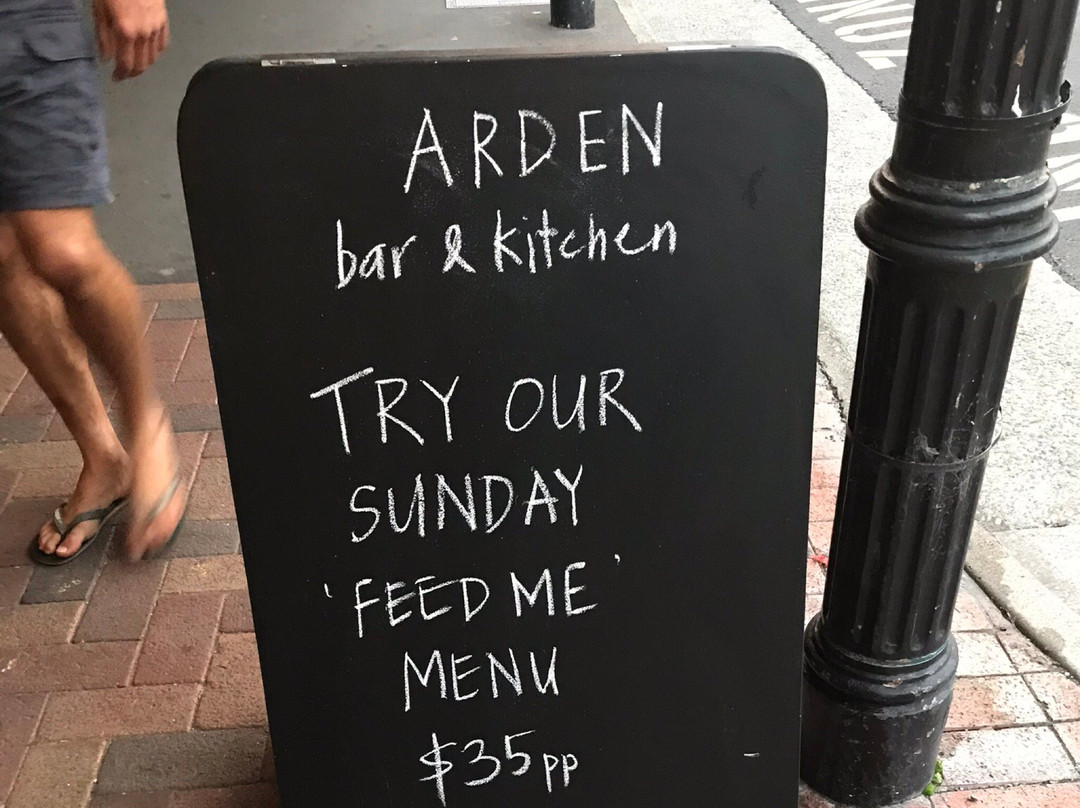 ARDEN
bar & kitchen
TRY OUR
SUNDAY
'FEED ME'
MENU
$35pp